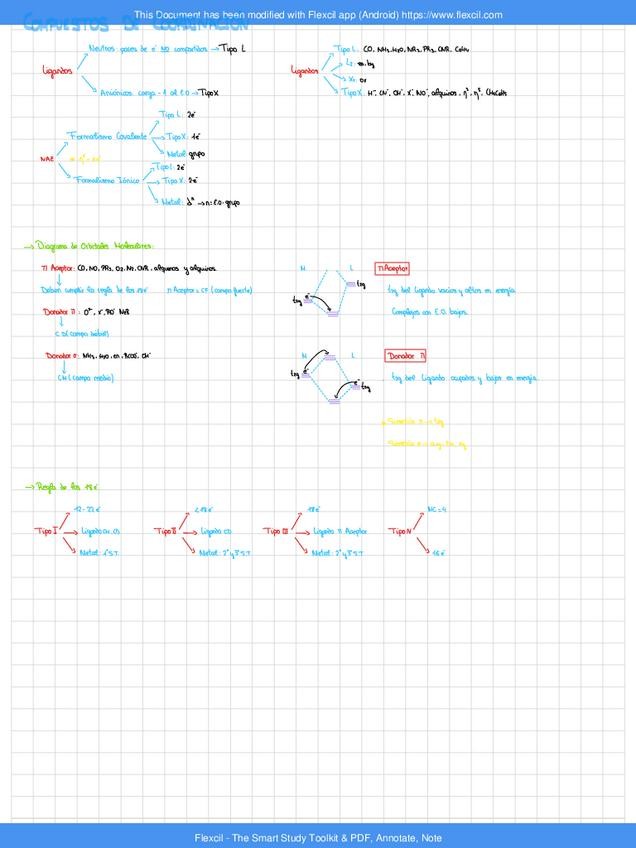 This Document has been modified with Flexcil app (Android) https://www.flexcil.com
COMPUESTOS DE COORDINACIÓN
Ligandos
Neutros pares de e⁻ NO compartidos → Tipo L
Aniónicos carga -1 al E.O → Tipo X
Ligandos
Tipo L: CO, NH₃, H₂O, NR₃, PR₃, CNR,
L₂:
X₂: ox
Tipo X: H⁻, CN⁻, X⁻, NO⁻, alquinos,
NAE
Formalismo Covalente
Tipo L: 2e⁻
Tipo X: 1e⁻
Metal: grupo
Formalismo Iónico
Tipo L: 2e⁻
Tipo X: 2e⁻
Metal: dⁿ → n: E.O-grupo
→ Diagrama de Orbitales Moleculares:
π Aceptor: CO, NO, PR₃, O₂, N₂, CNR, alquenos y alquinos.
Deben cumplir la regla de los 18e⁻
π Aceptor = CF (campo fuerte)
Donador π: O²⁻, X⁻, RO⁻
CD (campo débil)
Donador σ: NH₃, H₂O, en,
CM (campo medio)
M L
t₂g
t₂g
e⁻
π Aceptor
t₂g del ligando vacíos y altos en energía
Complejos con E.O. bajos.
M L
t₂g
t₂g
e⁻
e⁻
Donador π
t₂g del ligando ocupados y bajos en energía.
→ Regla de los 18e⁻
Tipo I
12-22 e⁻
Metal: 1ª S.T
Tipo II
≤18 e⁻
Ligando CD
Metal: 2ª y 3ª S.T
Tipo III
18e⁻
Ligando π Aceptor
Metal: 2ª y 3ª S.T
Tipo IV
NC=4
16 e⁻
Flexcil - The Smart Study Toolkit & PDF, Annotate, Note